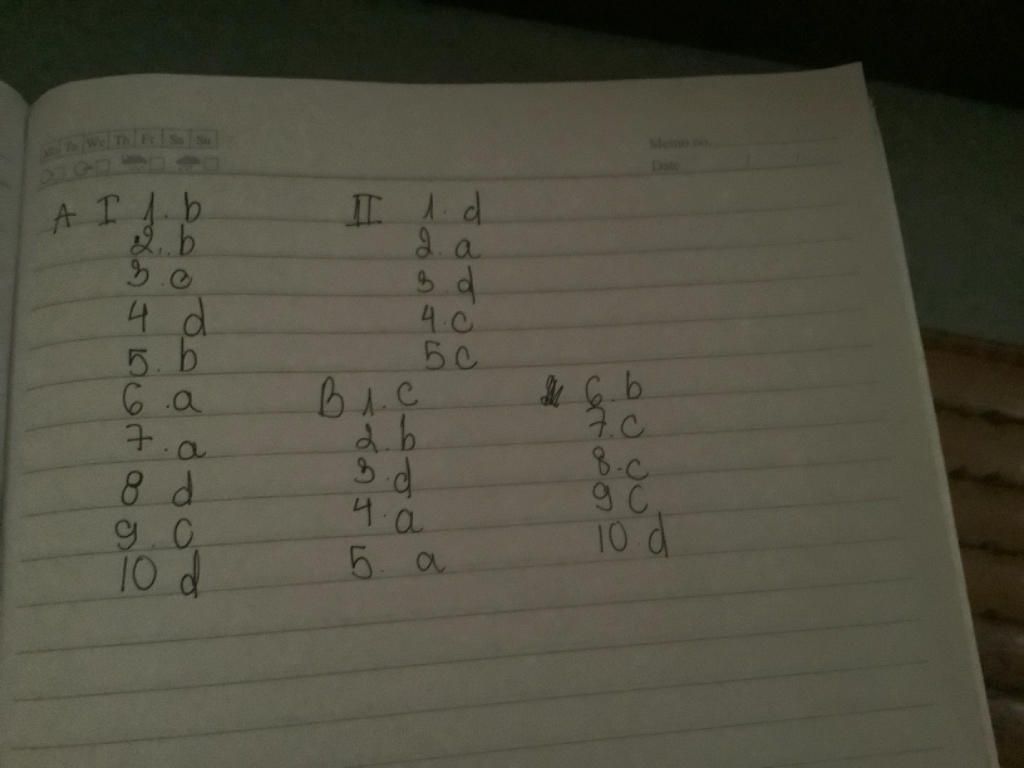 Tu We Th Fr Sa Su
Memo no.
Date / /
A I 1. b
2. b
3. c
4 d
5. b
6 .a
7 .a
8 d
9. C
10 d
II 1. d
2. a
3 d
4. c
5 c
B 1. c
2. b
3. d
4. a
5. a
6. b
7. c
8. c
9 C
10. d